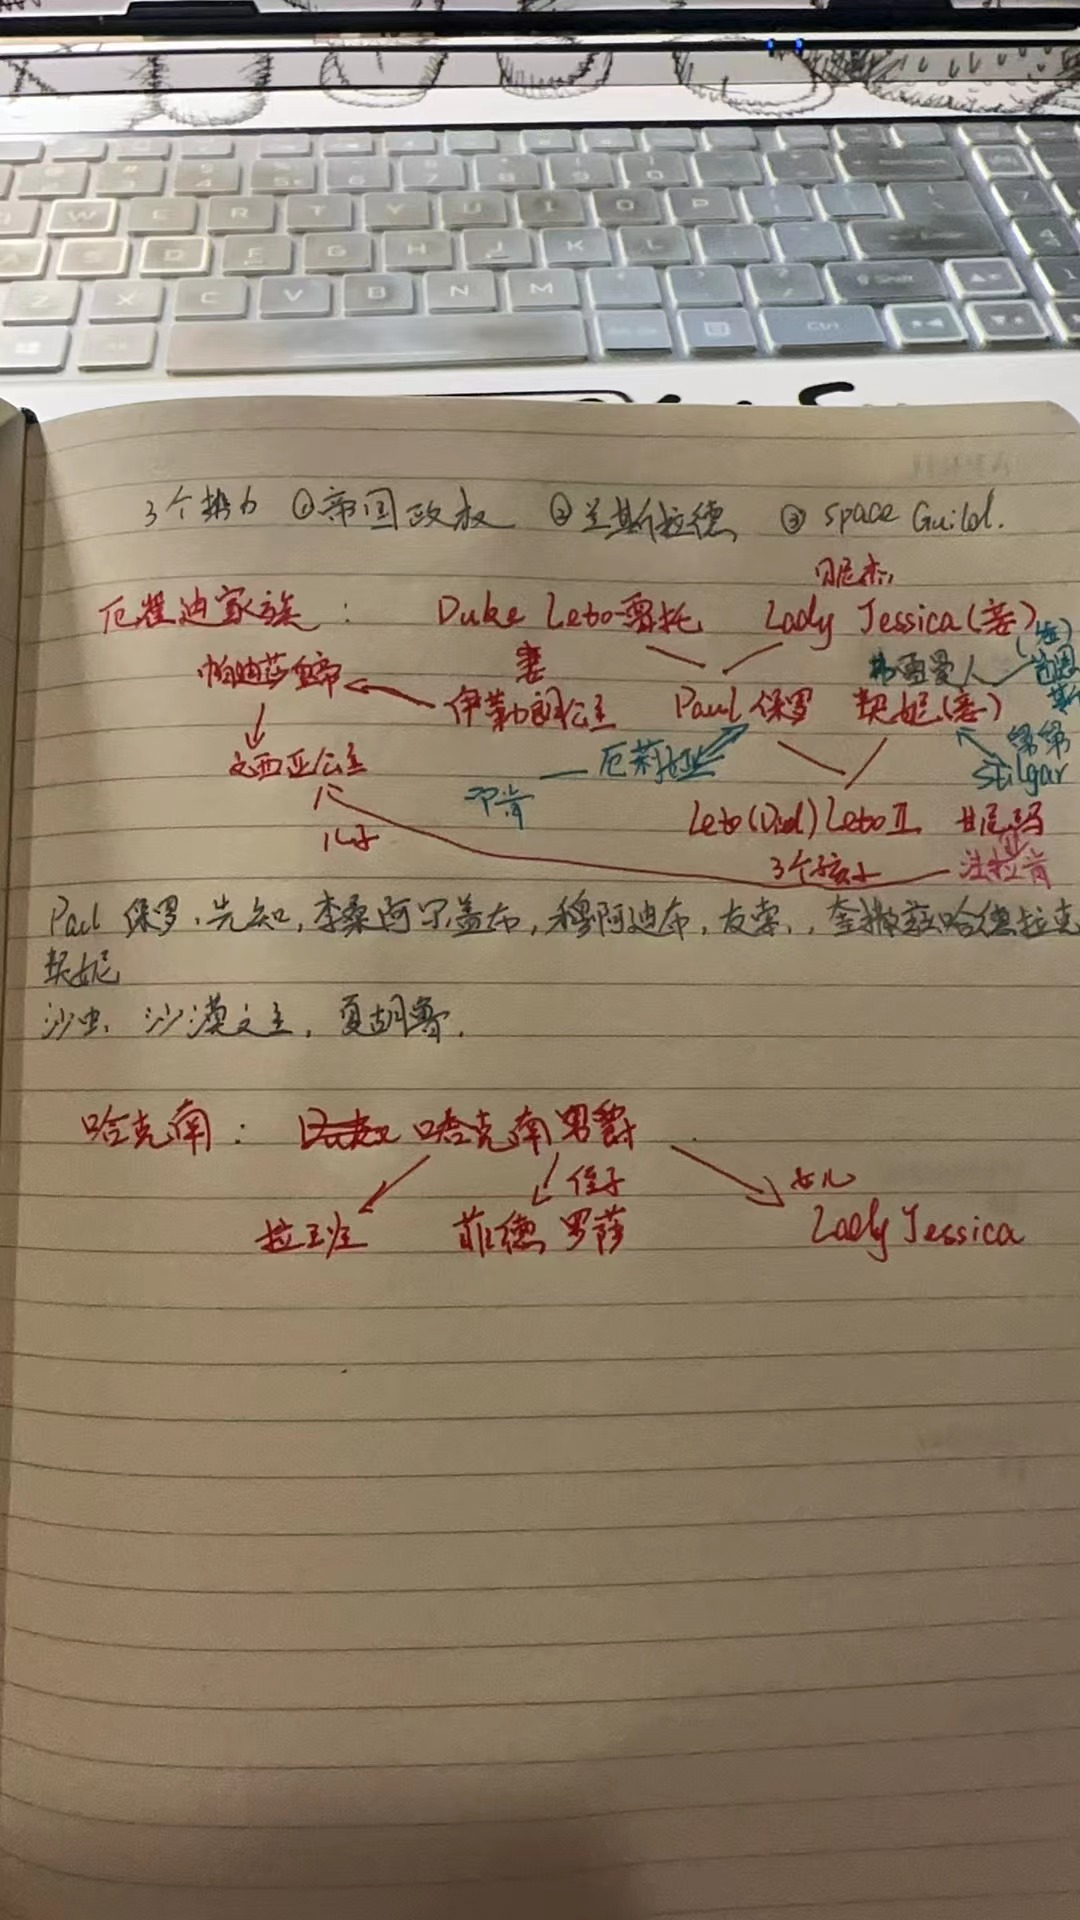 W E R T Y U I O P
S D F G H J K L
Z X C V B N M
Shift
Ctrl
3个势力 ①帝国政权 ②兰斯拉德 ③ Space Guild.
厄崔迪家族: Duke Leto-雷托 Lady Jessica(妾)
妻 弗雷曼人
伊勒朗公主 Paul 保罗 契妮(妾)
文西亚公主 厄莉娅 Stilgar
儿子 Leto(Died) Leto II 甘尼玛
3个孩子 法拉肯
Paul 保罗、先知,李桑阿尔盖布,穆阿迪布,友索,奎撒兹哈德拉克
契妮
沙虫、沙漠之主,夏胡鲁.
哈克南: 哈克南男爵
侄子 女儿
拉班 菲德罗萨 Lady Jessica